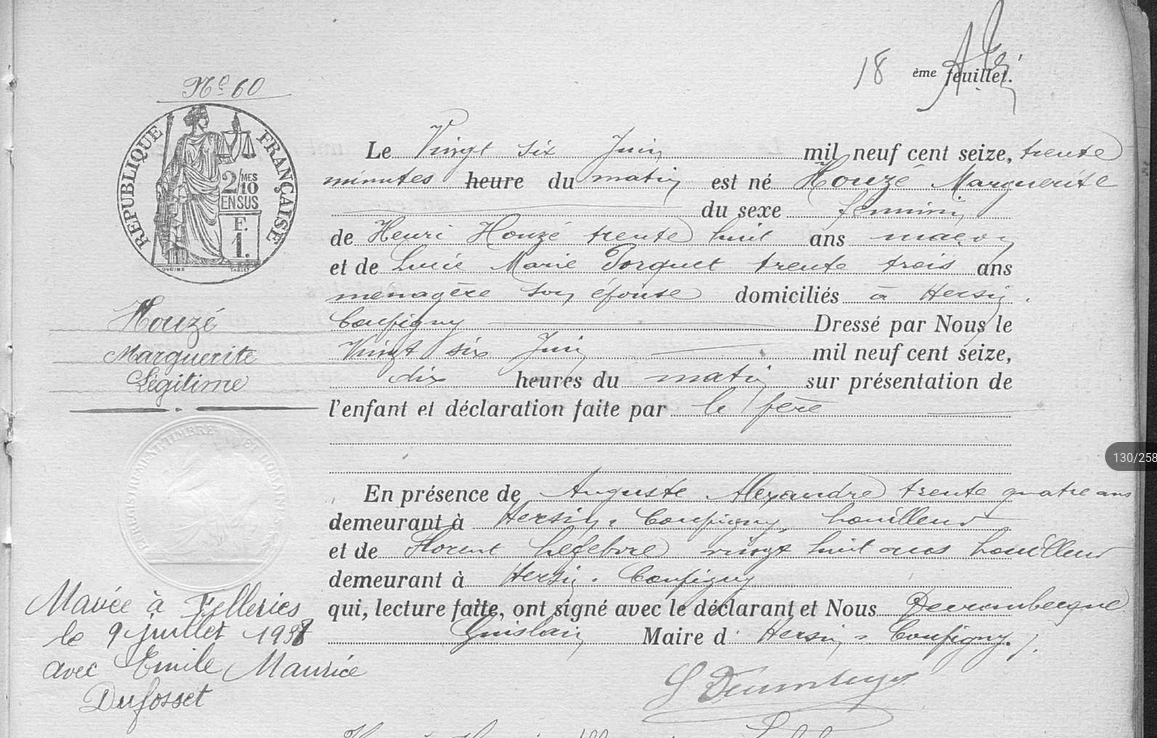 18 ème feuillet.
N° 60
RÉPUBLIQUE FRANÇAISE
2/MES
10
EN SUS
F.
1.
Le Vingt six Juin mil neuf cent seize, trente
minutes heure du matin est né Houzé Marguerite
du sexe féminin
de Henri Houzé trente huit ans maçon
et de Lucie Marie Porquet trente trois ans
menagère son épouse domiciliés à Hersin-
Coupigny Dressé par Nous le
Vingt six Juin mil neuf cent seize,
dix heures du matin sur présentation de
l'enfant et déclaration faite par le père
En présence de Auguste Alexandre trente quatre ans
demeurant à Hersin-Coupigny, houilleur
et de Florent Lefebvre vingt huit ans houilleur
demeurant à Hersin-Coupigny
qui, lecture faite, ont signé avec le déclarant et Nous Devrambergue
Guislain Maire d' Hersin-Coupigny.
Houzé
Marguerite
Légitime
Mariée à Felleries
le 9 juillet
avec Emile Maurice
Dufosset
130/258